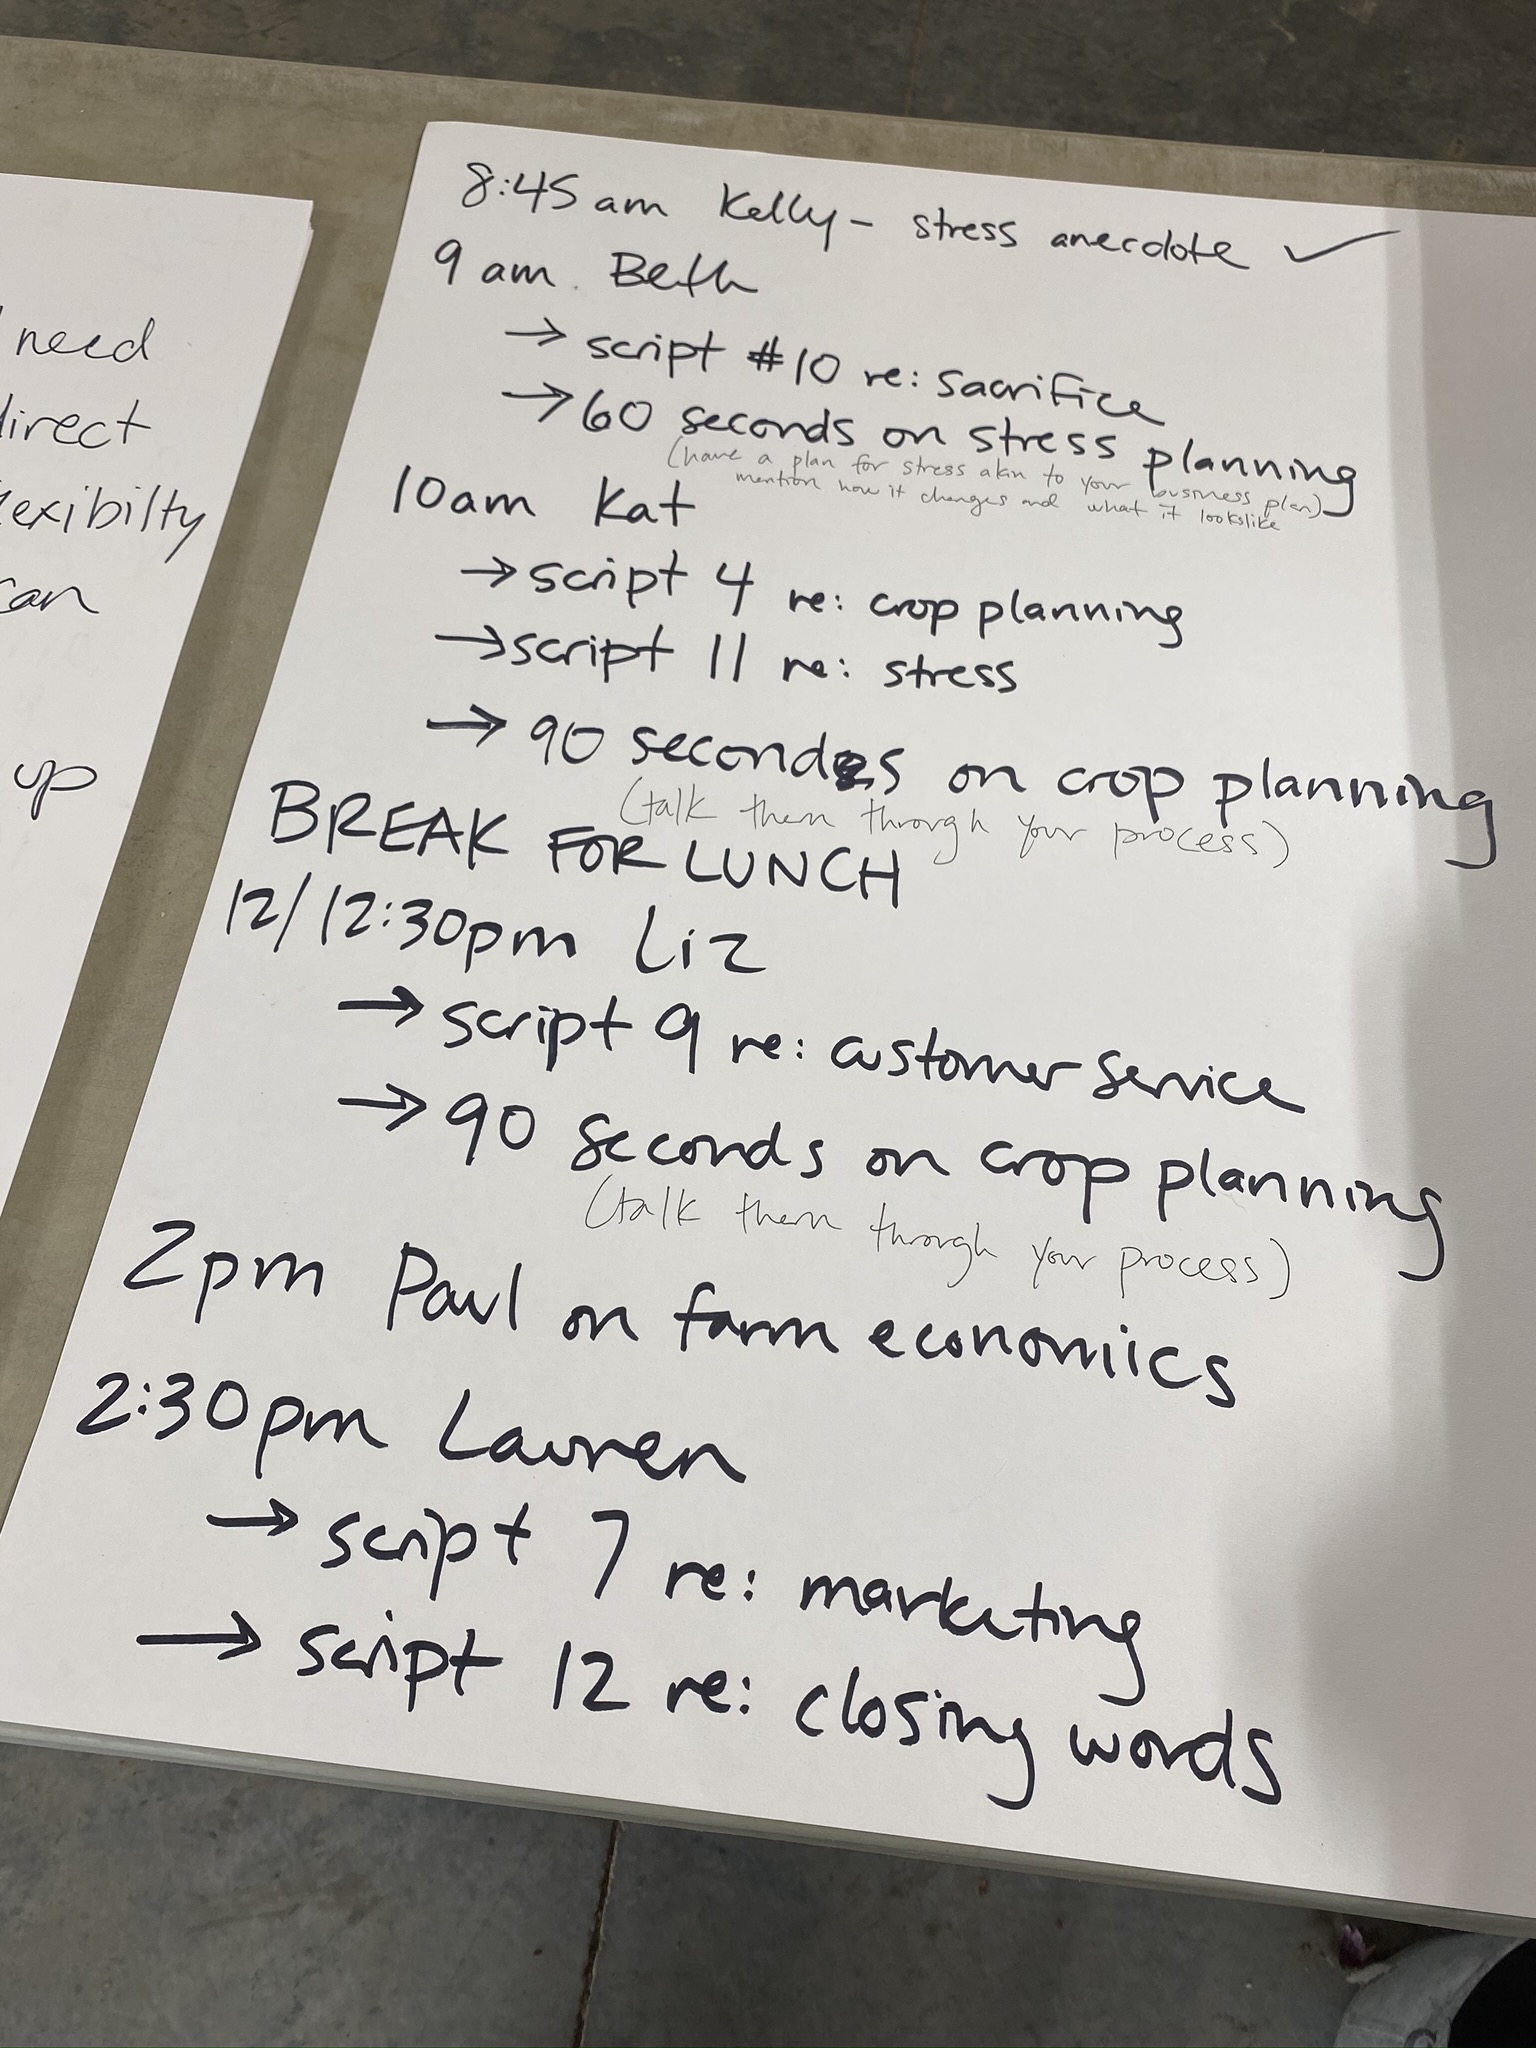 need
direct
exibilty
can
up
8:45 am Kelly - stress anecdote ✓
9 am. Beth
→ script #10 re: sacrifice
→ 60 seconds on stress planning
(have a plan for stress akin to your business plan)
mention how it changes and what it looks like
10am Kat
→ script 4 re: crop planning
→ script 11 re: stress
→ 90 seconds on crop planning
(talk them through your process)
BREAK FOR LUNCH
12/12:30pm Liz
→ script 9 re: customer service
→ 90 seconds on crop planning
(talk them through your process)
2pm Paul on farm economics
2:30pm Lauren
→ script 7 re: marketing
→ script 12 re: closing words